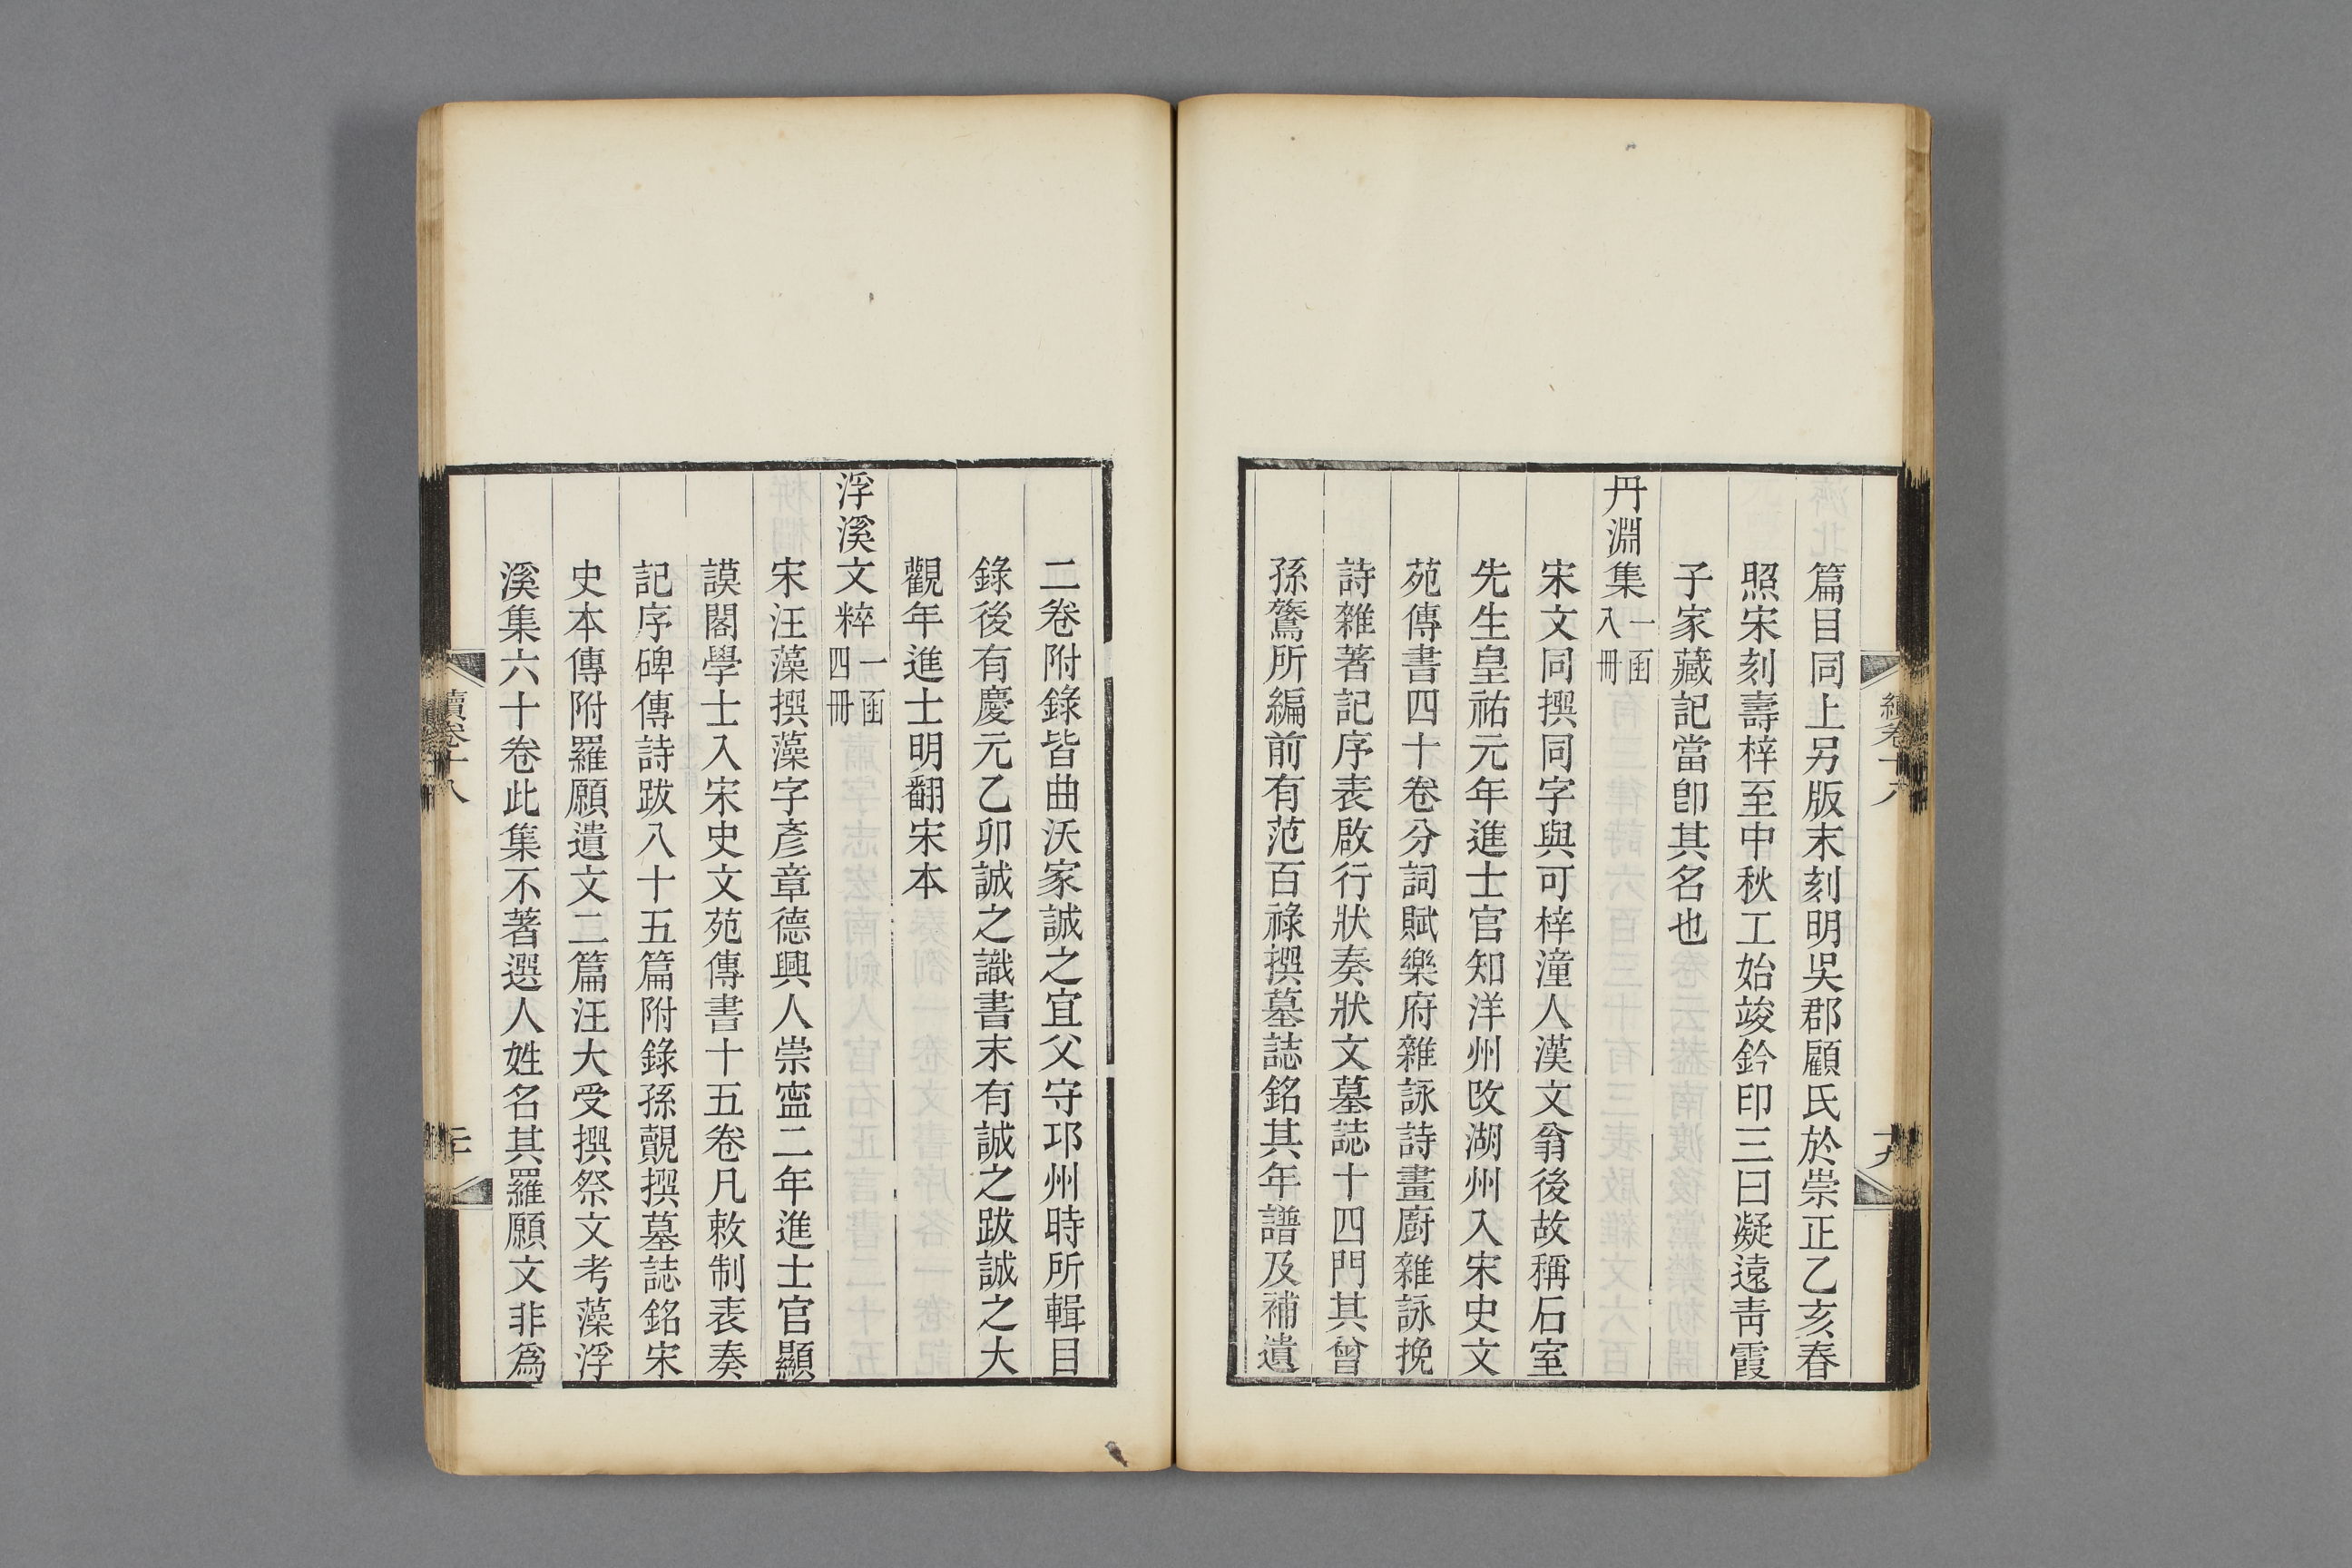 篇目同上另版末刻明吳郡顧氏於崇正乙亥春
照宋刻壽梓至中秋工始竣鈐印三曰凝遠青霞
子家藏記當卽其名也
丹淵集一函八冊
宋文同撰同字與可梓潼人漢文翁後故稱石室
先生皇祐元年進士官知洋州改湖州入宋史文
苑傳書四十卷分詞賦樂府雜詠詩畫廚雜詠挽
詩雜著記序表啟行狀奏狀文墓誌十四門其曾
孫鷟所編前有范百祿撰墓誌銘其年譜及補遺
續卷十八
十九
二卷附錄皆曲沃家誠之宜父守邛州時所輯目
錄後有慶元乙卯誠之識書末有誠之跋誠之大
觀年進士明翻宋本
浮溪文粹一函四冊
宋汪藻撰藻字彥章德興人崇寧二年進士官顯
謨閣學士入宋史文苑傳書十五卷凡敕制表奏
記序碑傳詩跋八十五篇附錄孫覿撰墓誌銘宋
史本傳附羅願遺文二篇汪大受撰祭文考藻浮
溪集六十卷此集不著選人姓名其羅願文非爲
續卷十八
二十